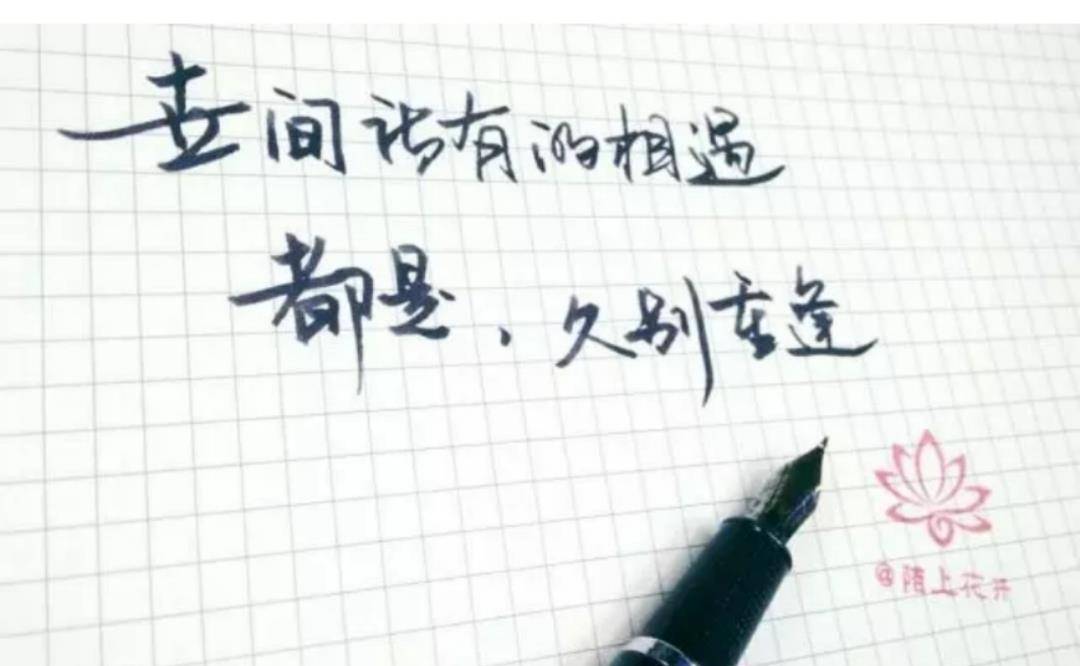 世间所有的相遇
都是，久别重逢
@陌上花开